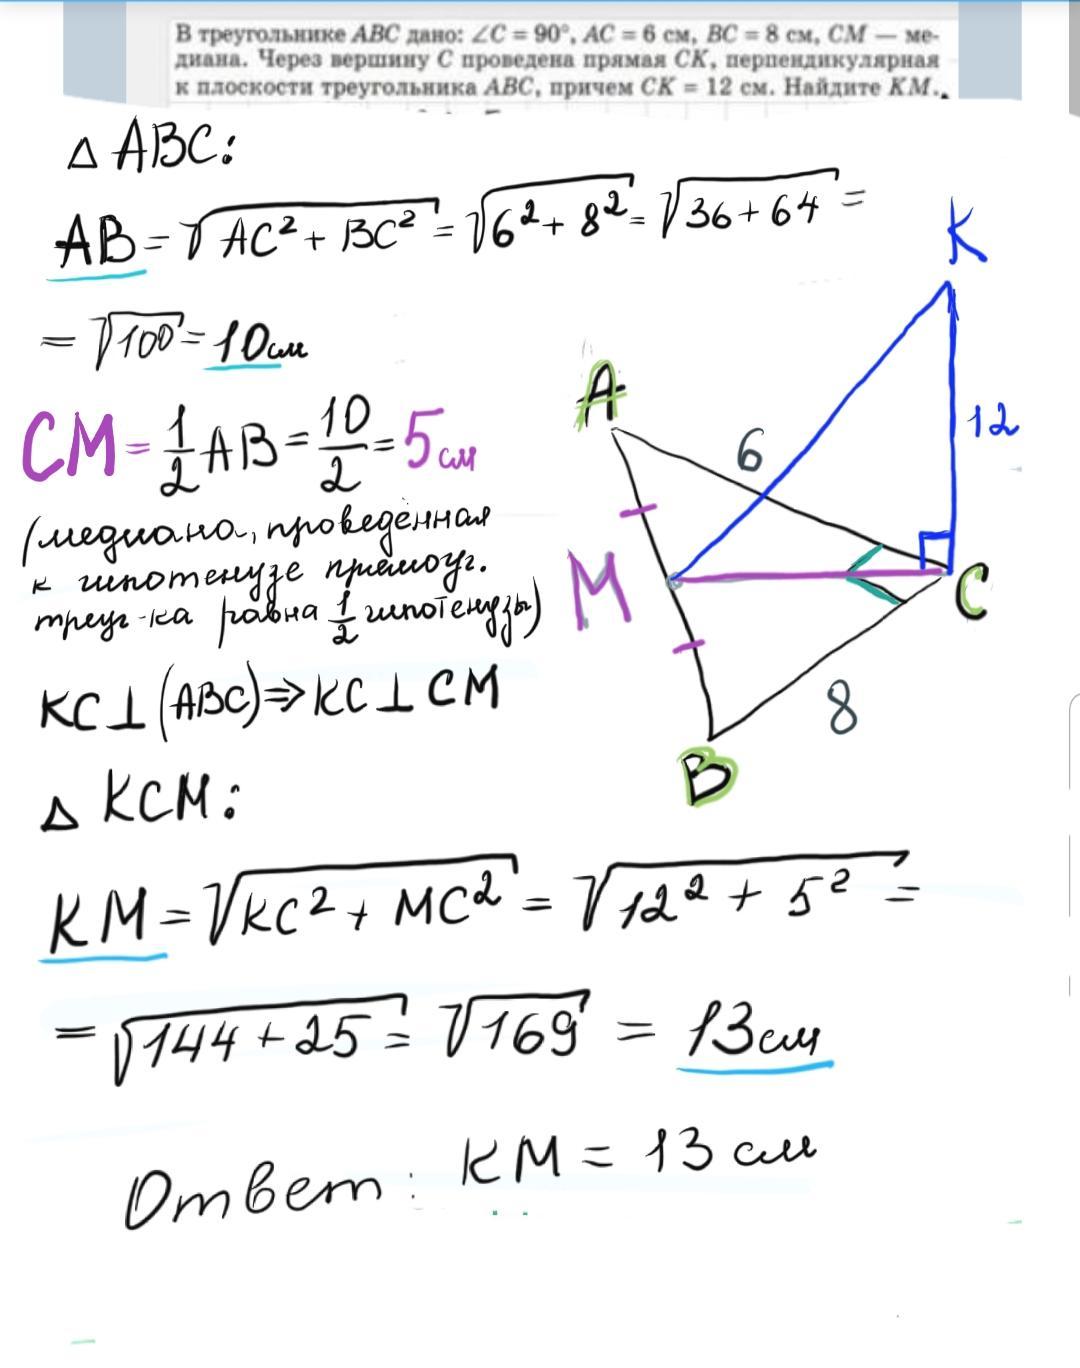 В треугольнике ABC дано: ∠C = 90°, AC = 6 см, BC = 8 см, CM — ме-
диана. Через вершину C проведена прямая CK, перпендикулярная
к плоскости треугольника ABC, причем CK = 12 см. Найдите KM.
△ ABC:
AB = √(AC² + BC²) = √(6² + 8²) = √(36 + 64) =
= √100 = 10 см
CM = 1/2 AB = 10/2 = 5 см
(медиана, проведённая
к гипотенузе прямоуг.
треуг-ка равна 1/2 гипотенузы)
KC ⊥ (ABC) ⇒ KC ⊥ CM
△ KCM:
KM = √(KC² + MC²) = √(12² + 5²) =
= √(144 + 25) = √169 = 13 см
Ответ: KM = 13 см
K
A
6
12
M
C
8
B